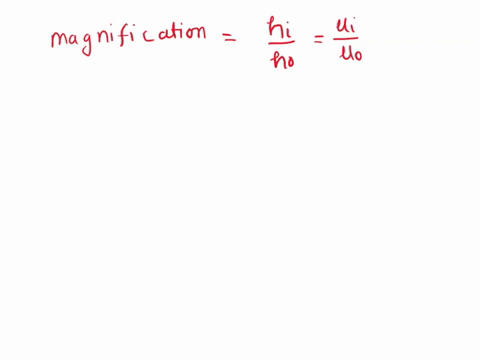 magnification = hi/ho = ui/uo